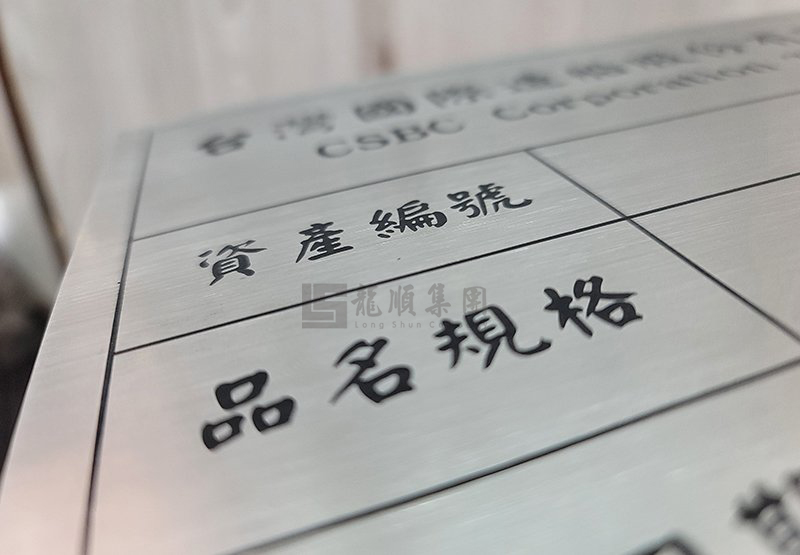 台灣國際造船股份有
CSBC Corporation
資產編號
龍順集團
Long Shun C
品名規格
期